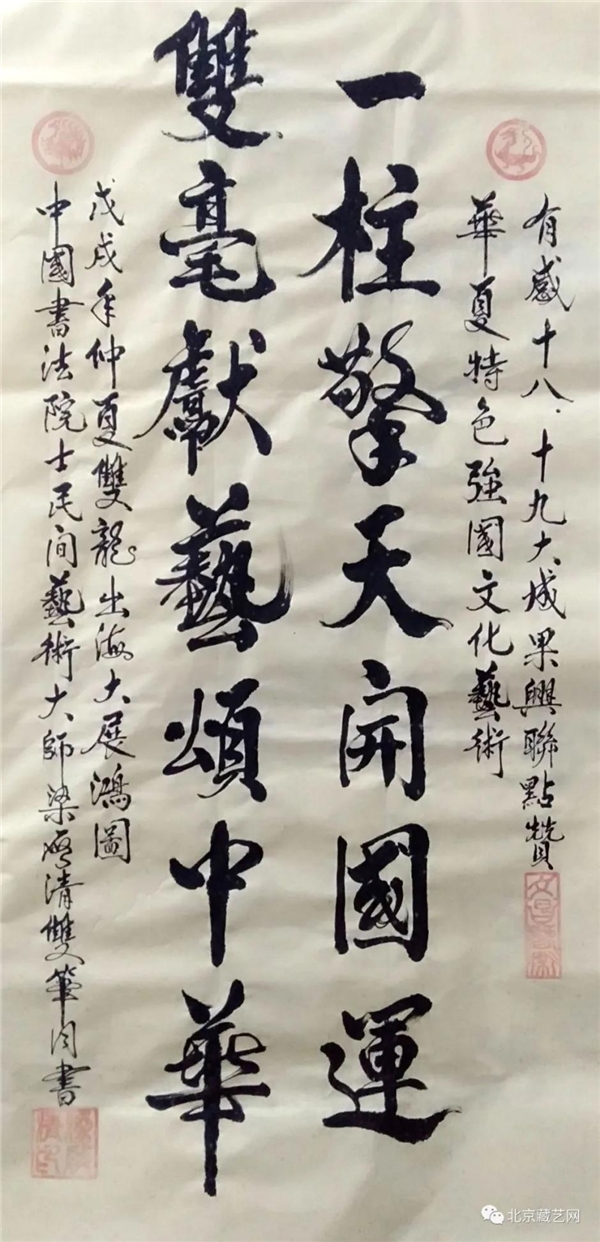 有感十八.十九大城果興聯點贊
華夏特色強國文化藝術
一柱擎天開國運
雙毫獻藝頌中華
戊戌年仲夏雙龍出海大展鴻圖
中國書法院士民间藝術大師梁清雙筆同書
北京藏艺网